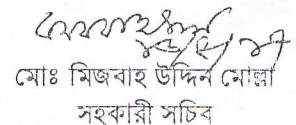 মোঃ মিজবাহ উদ্দিন মোল্লা
সহকারী সচিব